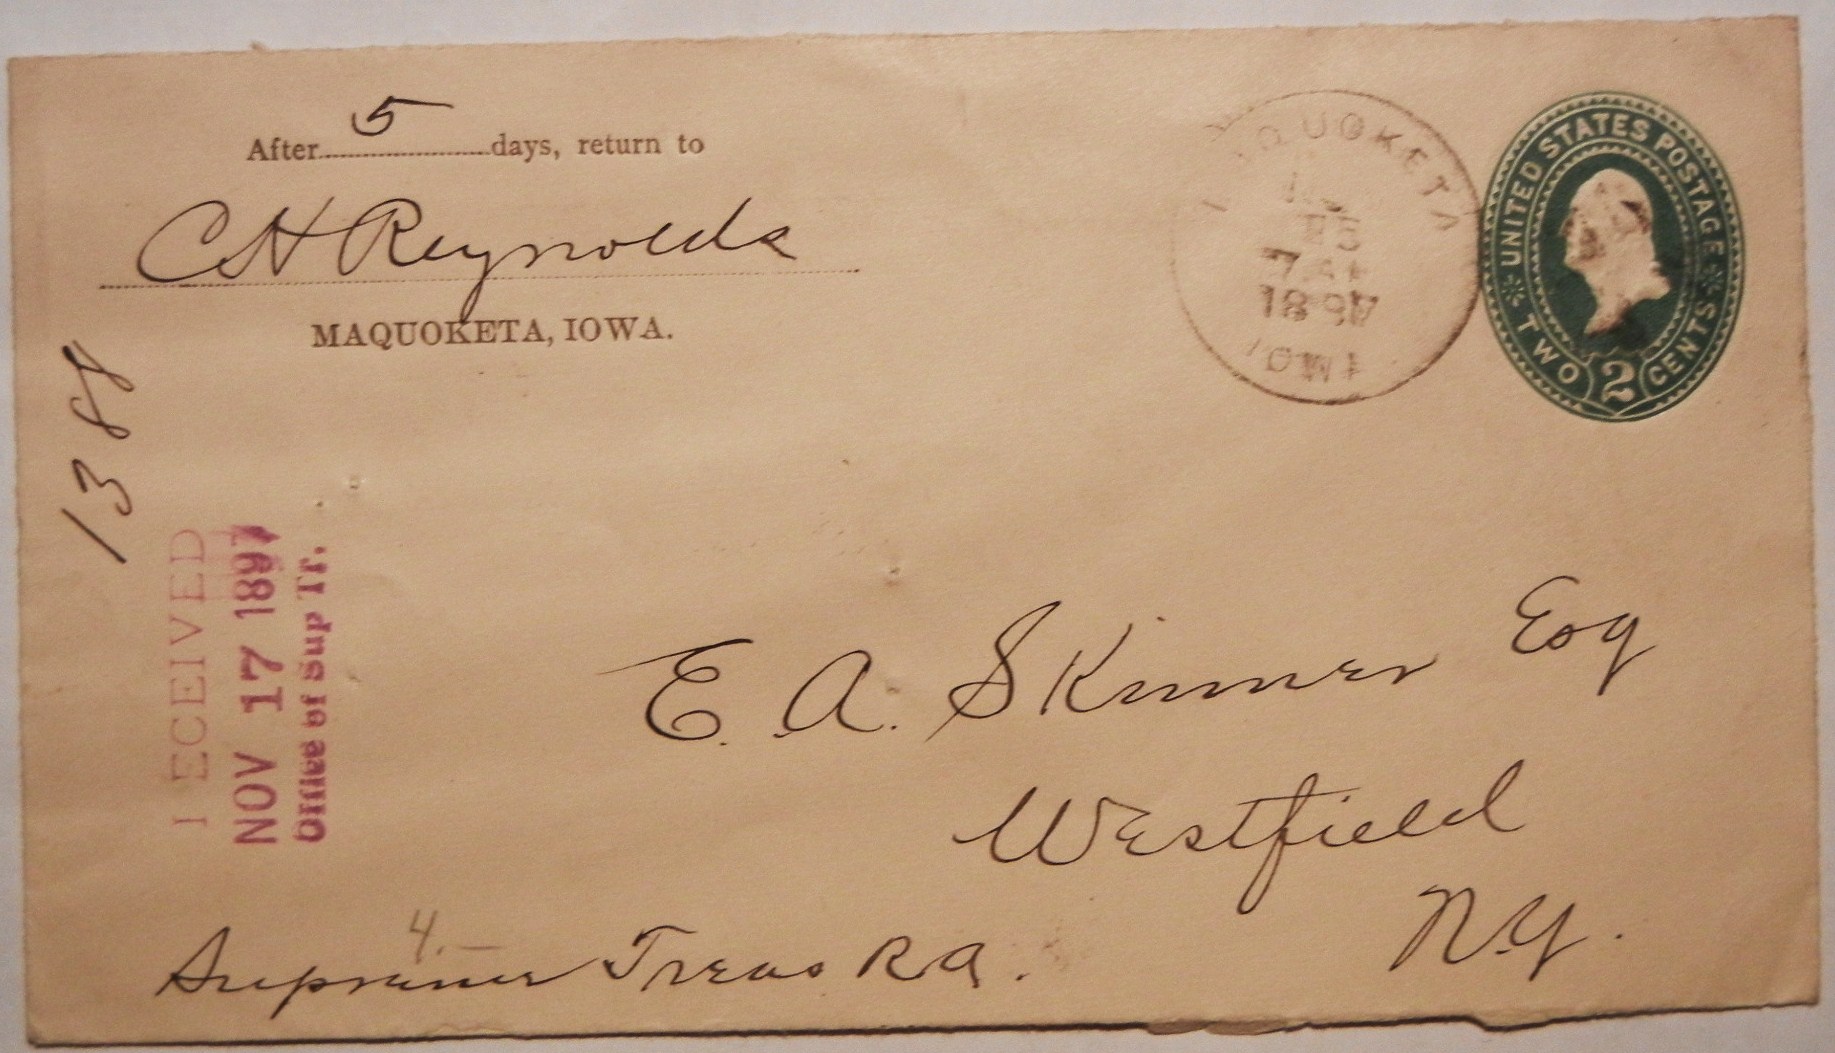 After 5 days, return to
C H Reynolds
MAQUOKETA, IOWA.
QUOKETA
15
7 A
1897
IOWA
UNITED STATES POSTAGE
TWO 2 CENTS
1388
ECEIVED
NOV 17 1897
Office of Sup Tr.
E. A. Skinner Esq
Westfield
N.Y.
4.—
Supreme Treas R A.